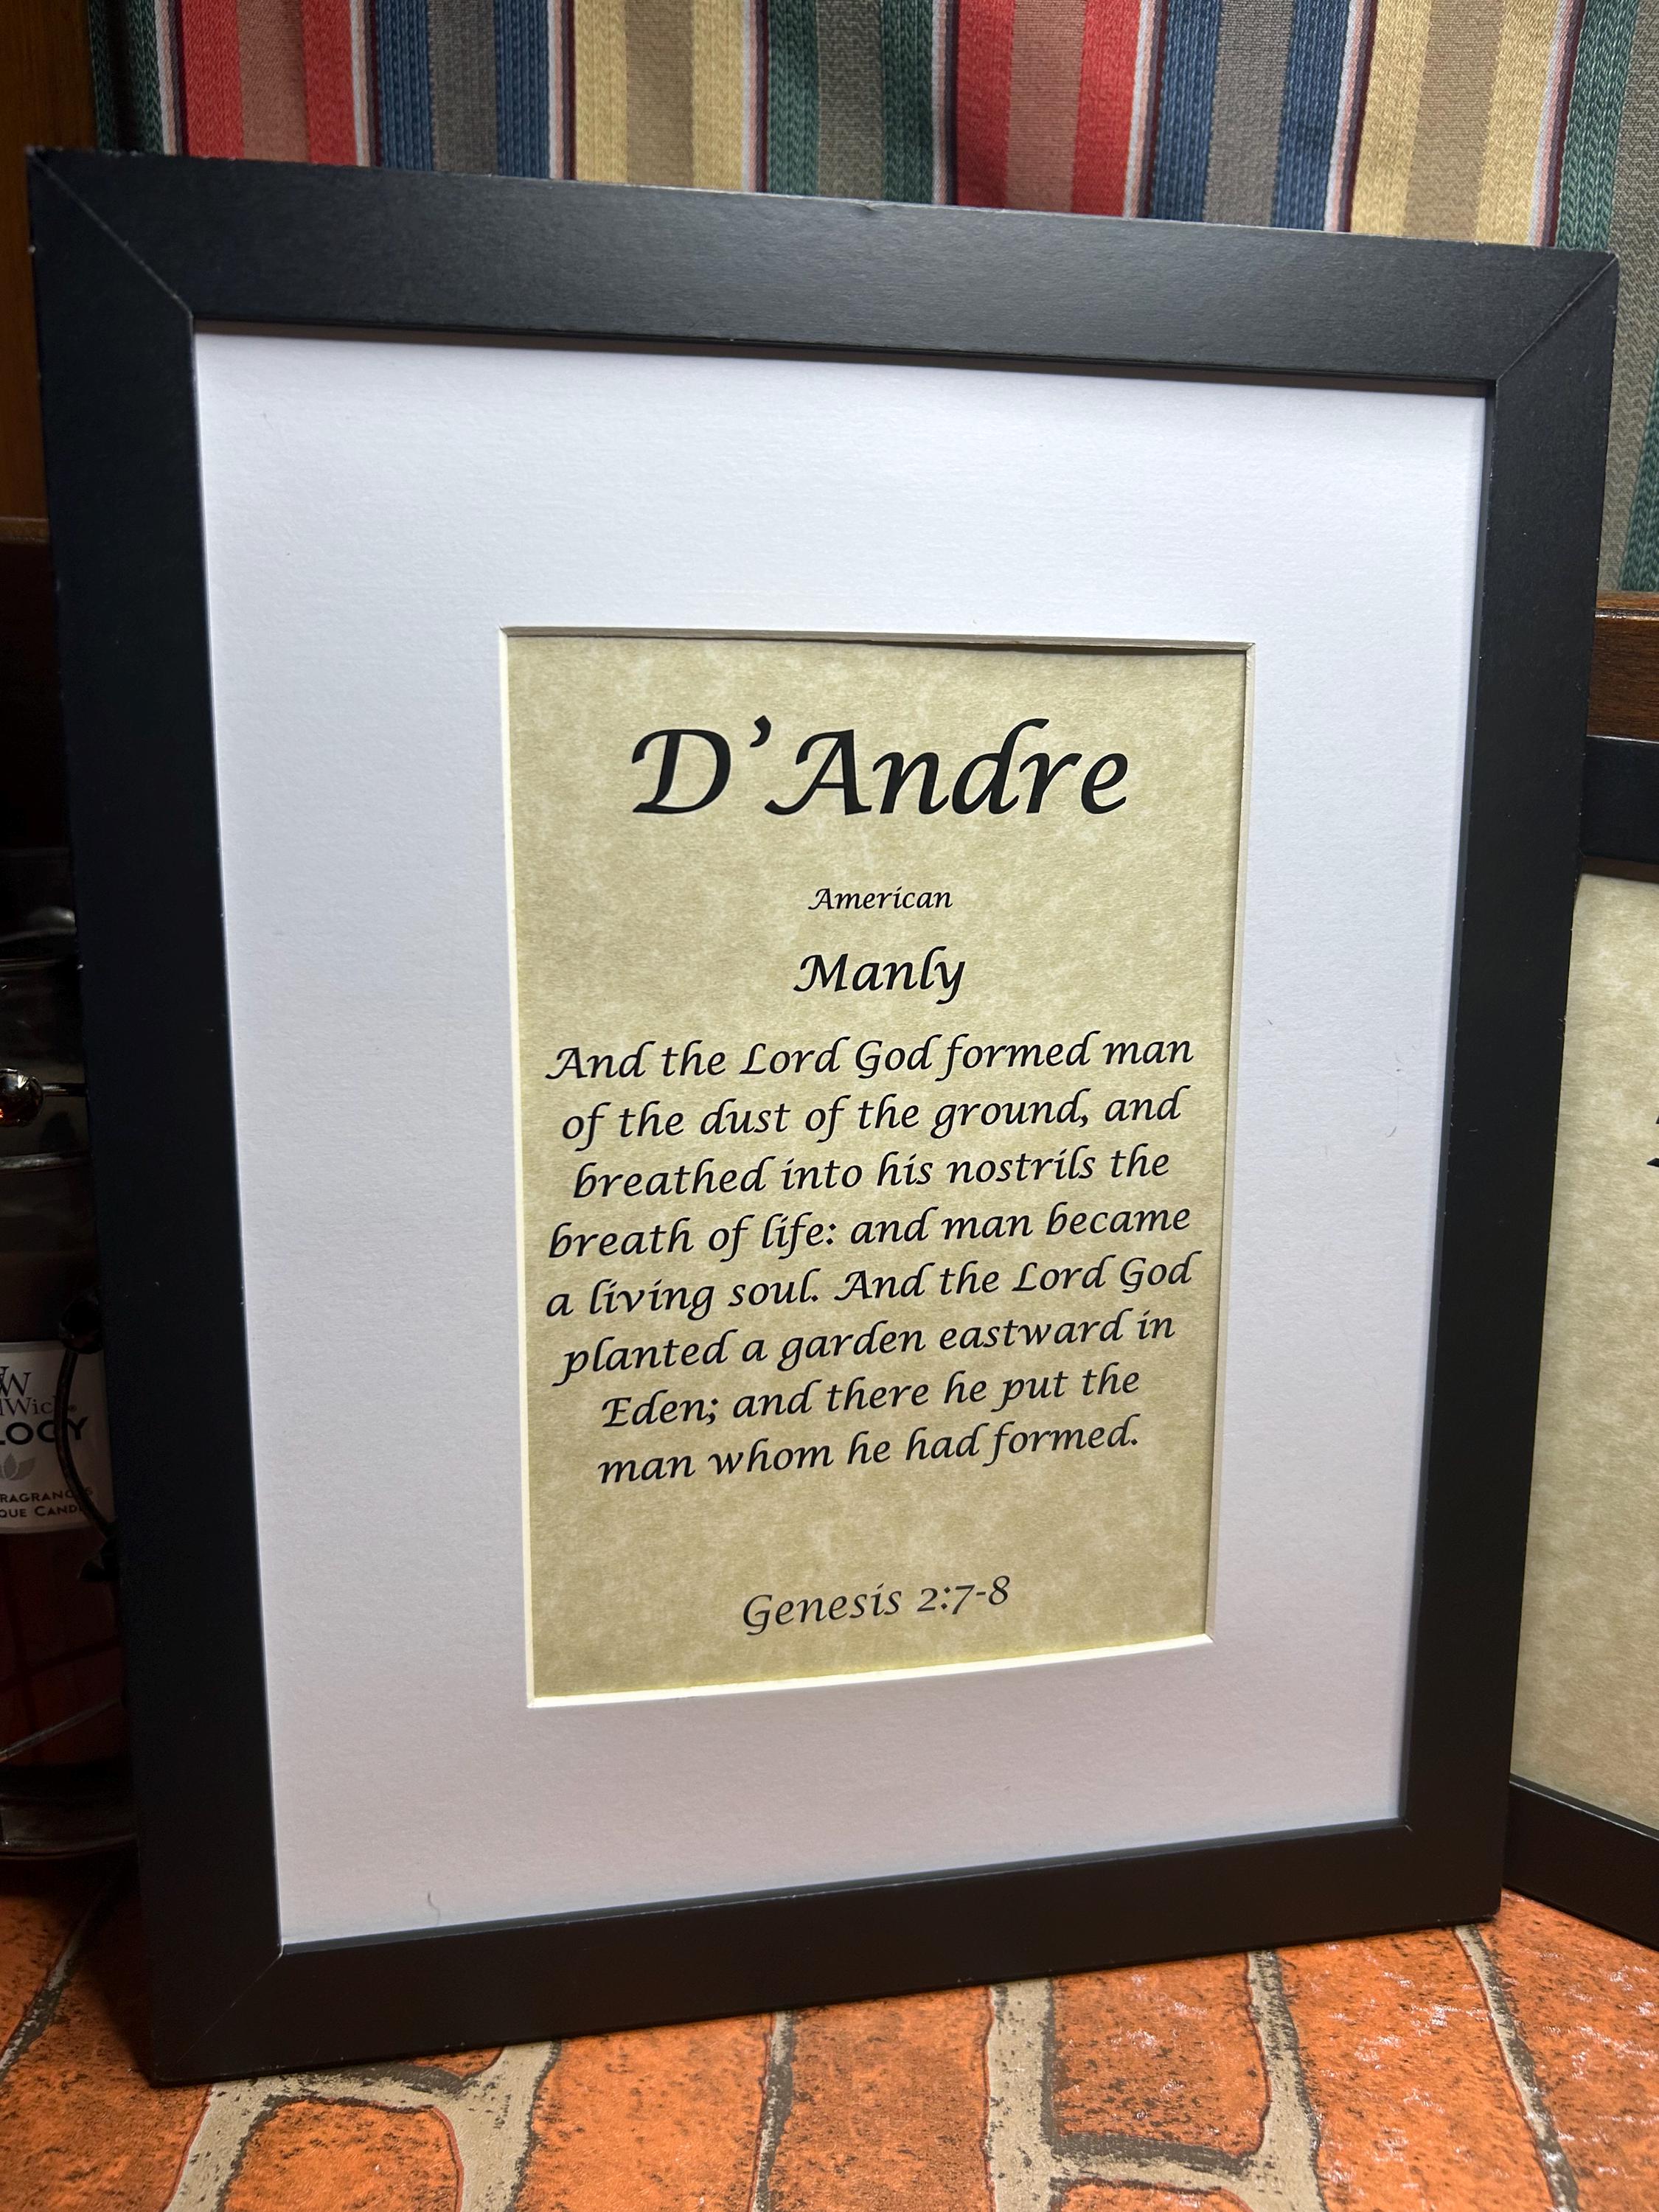 D'Andre
American
Manly
And the Lord God formed man
of the dust of the ground, and
breathed into his nostrils the
breath of life: and man became
a living soul. And the Lord God
planted a garden eastward in
Eden; and there he put the
man whom he had formed.
Genesis 2:7-8